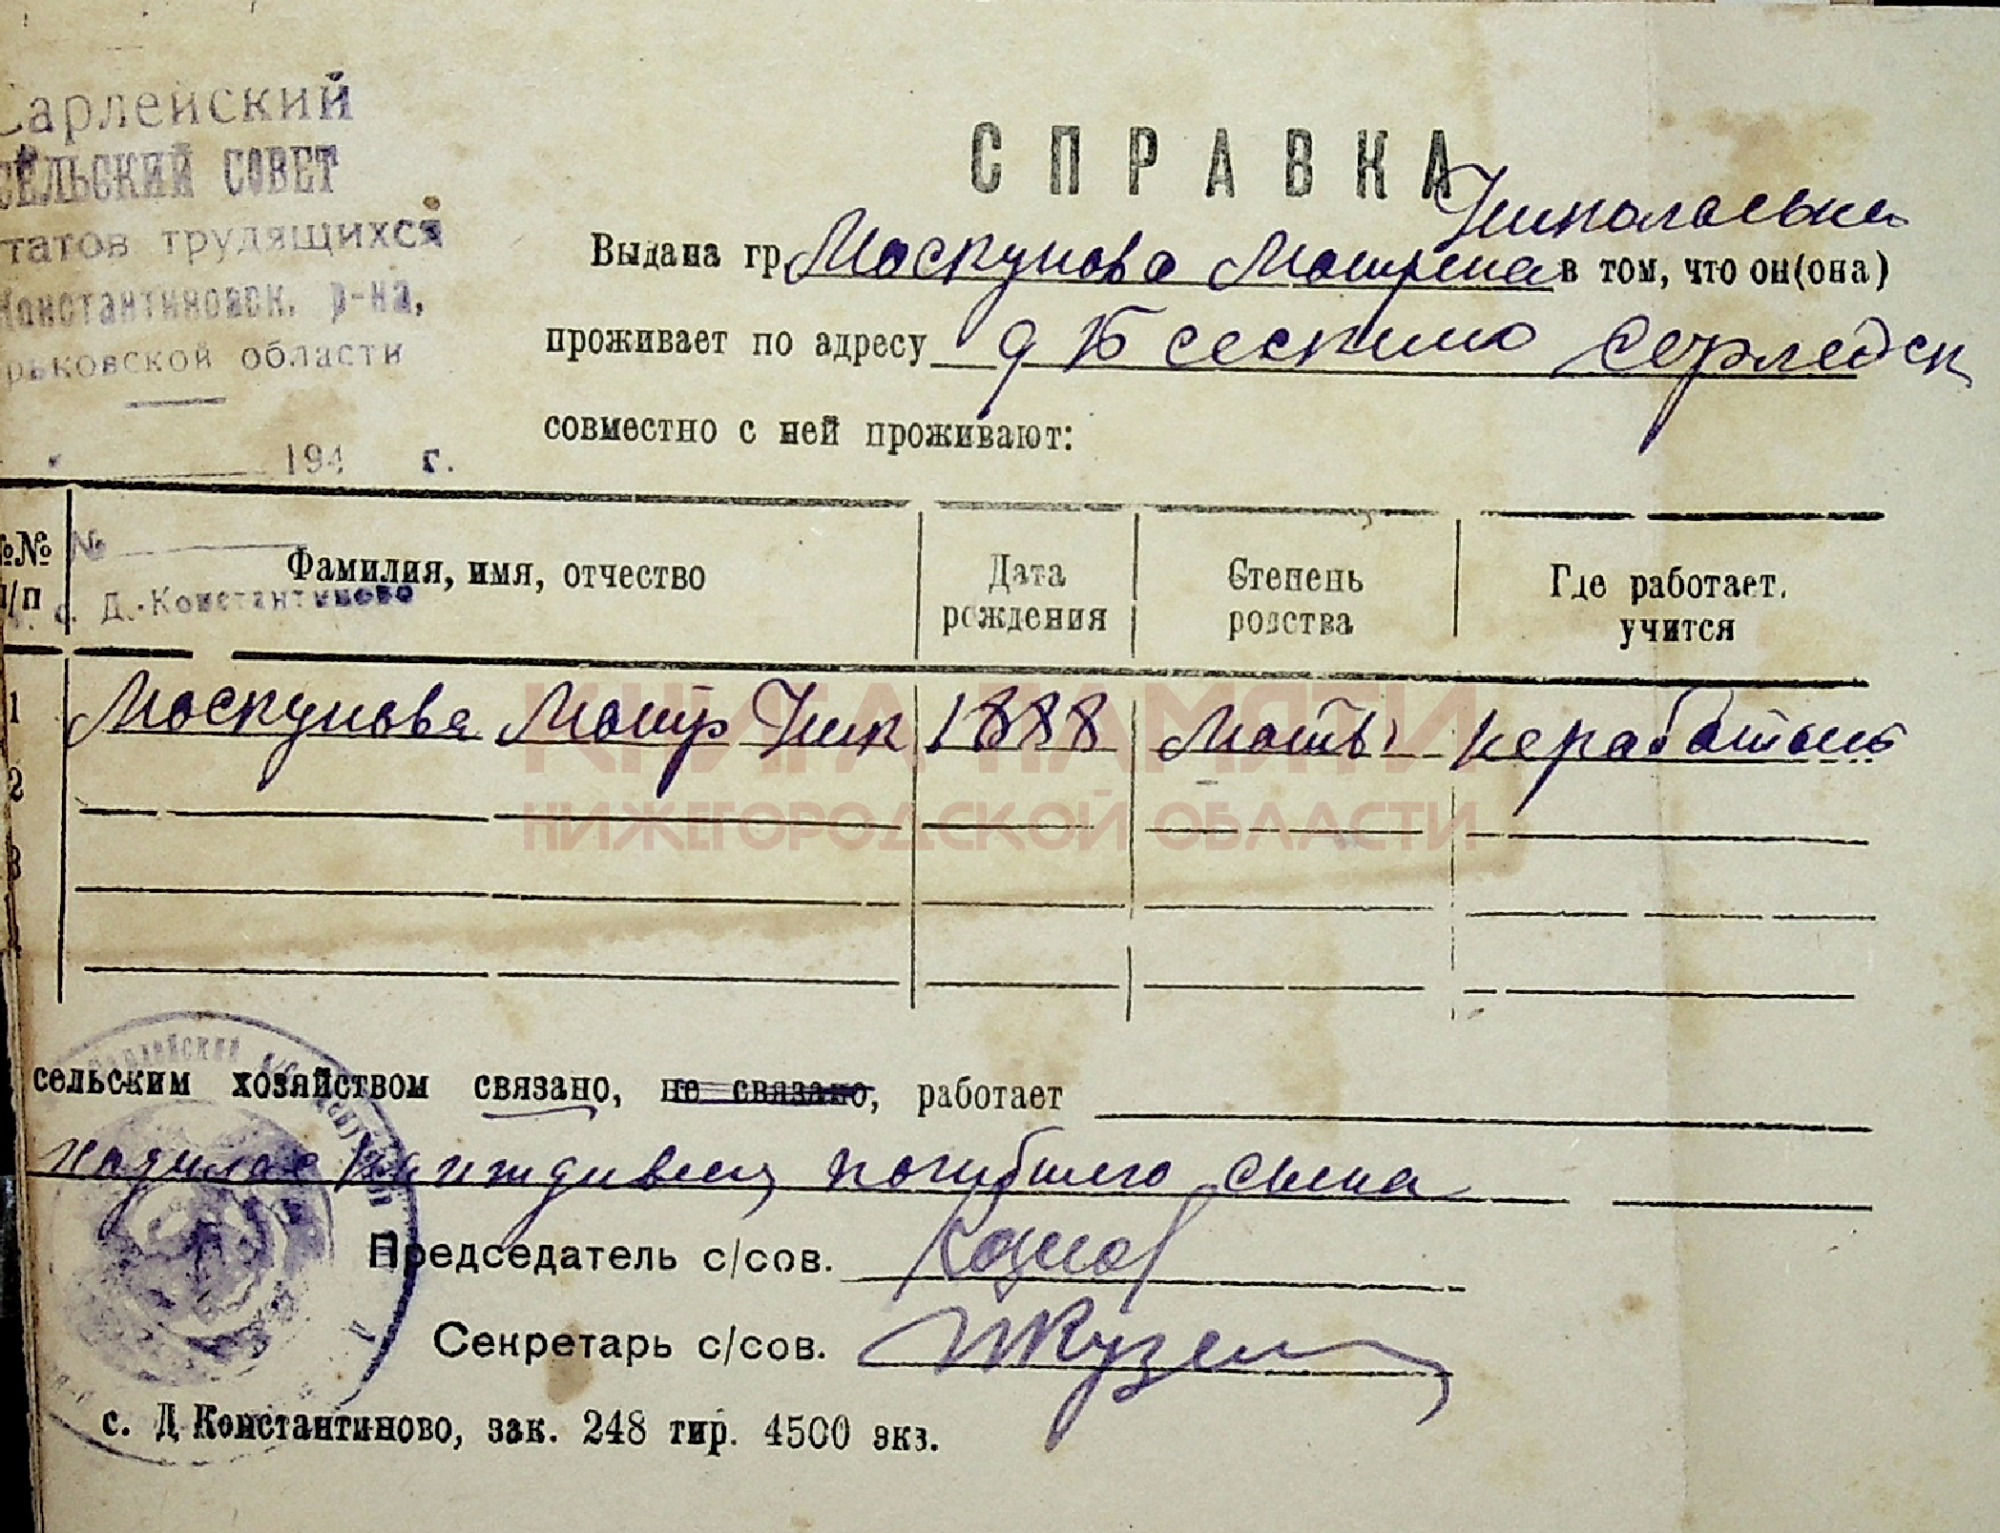 Сарлейский
СЕЛЬСКИЙ СОВЕТ
татов трудящихся
Константиновск. р-на,
рьковской области
194 г.
№
с. Д.-Константиново
СПРАВКА
Николаевна
Выдана гр. Москунова Матрена в том, что он(она)
проживает по адресу д Сарлейск
совместно с ней проживают:
№№ п/п Фамилия, имя, отчество Дата рождения Степень родства Где работает, учится
1 Москунова Матр Ник 1888 Мать неработает
2
3
КНИГА ПАМЯТИ
НИЖЕГОРОДСКОЙ ОБЛАСТИ
сельским хозяйством связано, не связано, работает
иждивен погибшего сына
Председатель с/сов.
Секретарь с/сов.
с. Д. Константиново, зак. 248 тир. 4500 экз.